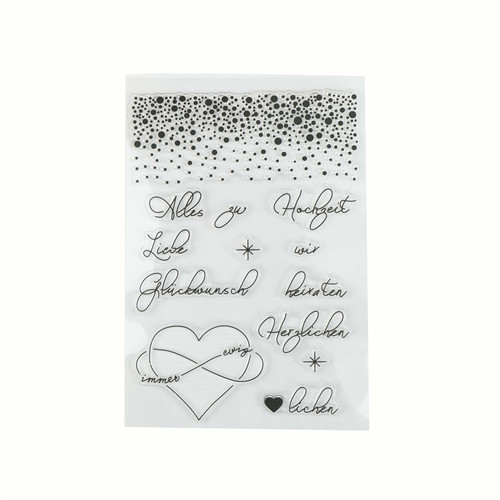 Alles zur Hochzeit
Liebe wir
Glückwunsch heiraten
Herzlichen
ewig
immer
lichen